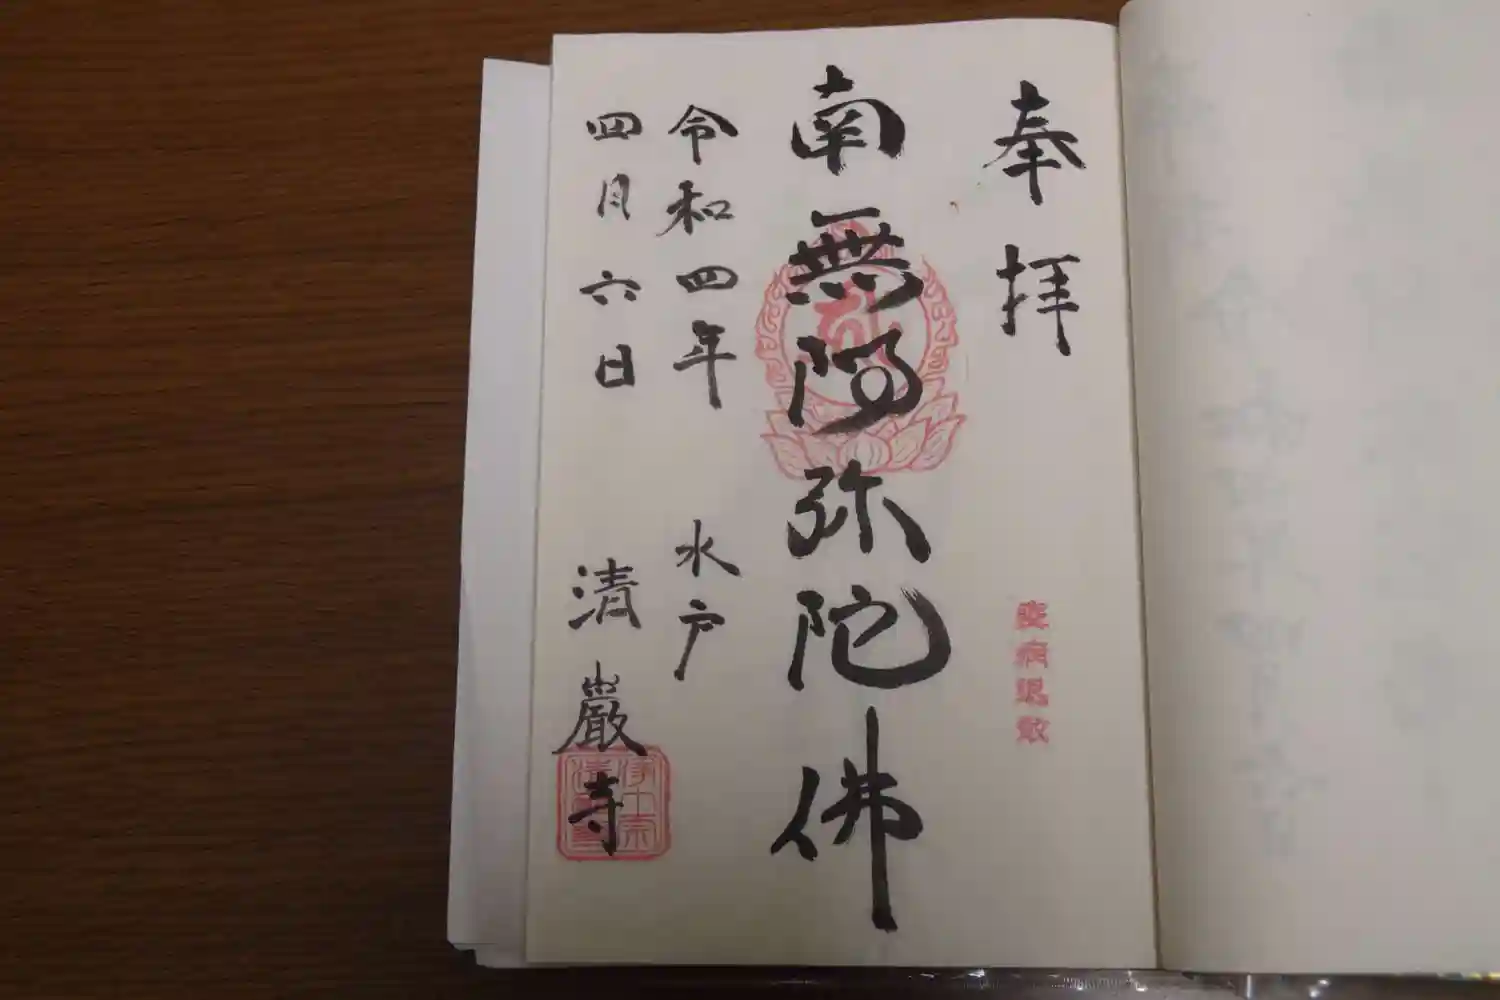 奉拝
疫病退散
南無阿弥陀佛
令和四年 水戸
四月六日 清巌寺
浄土宗
清巌寺